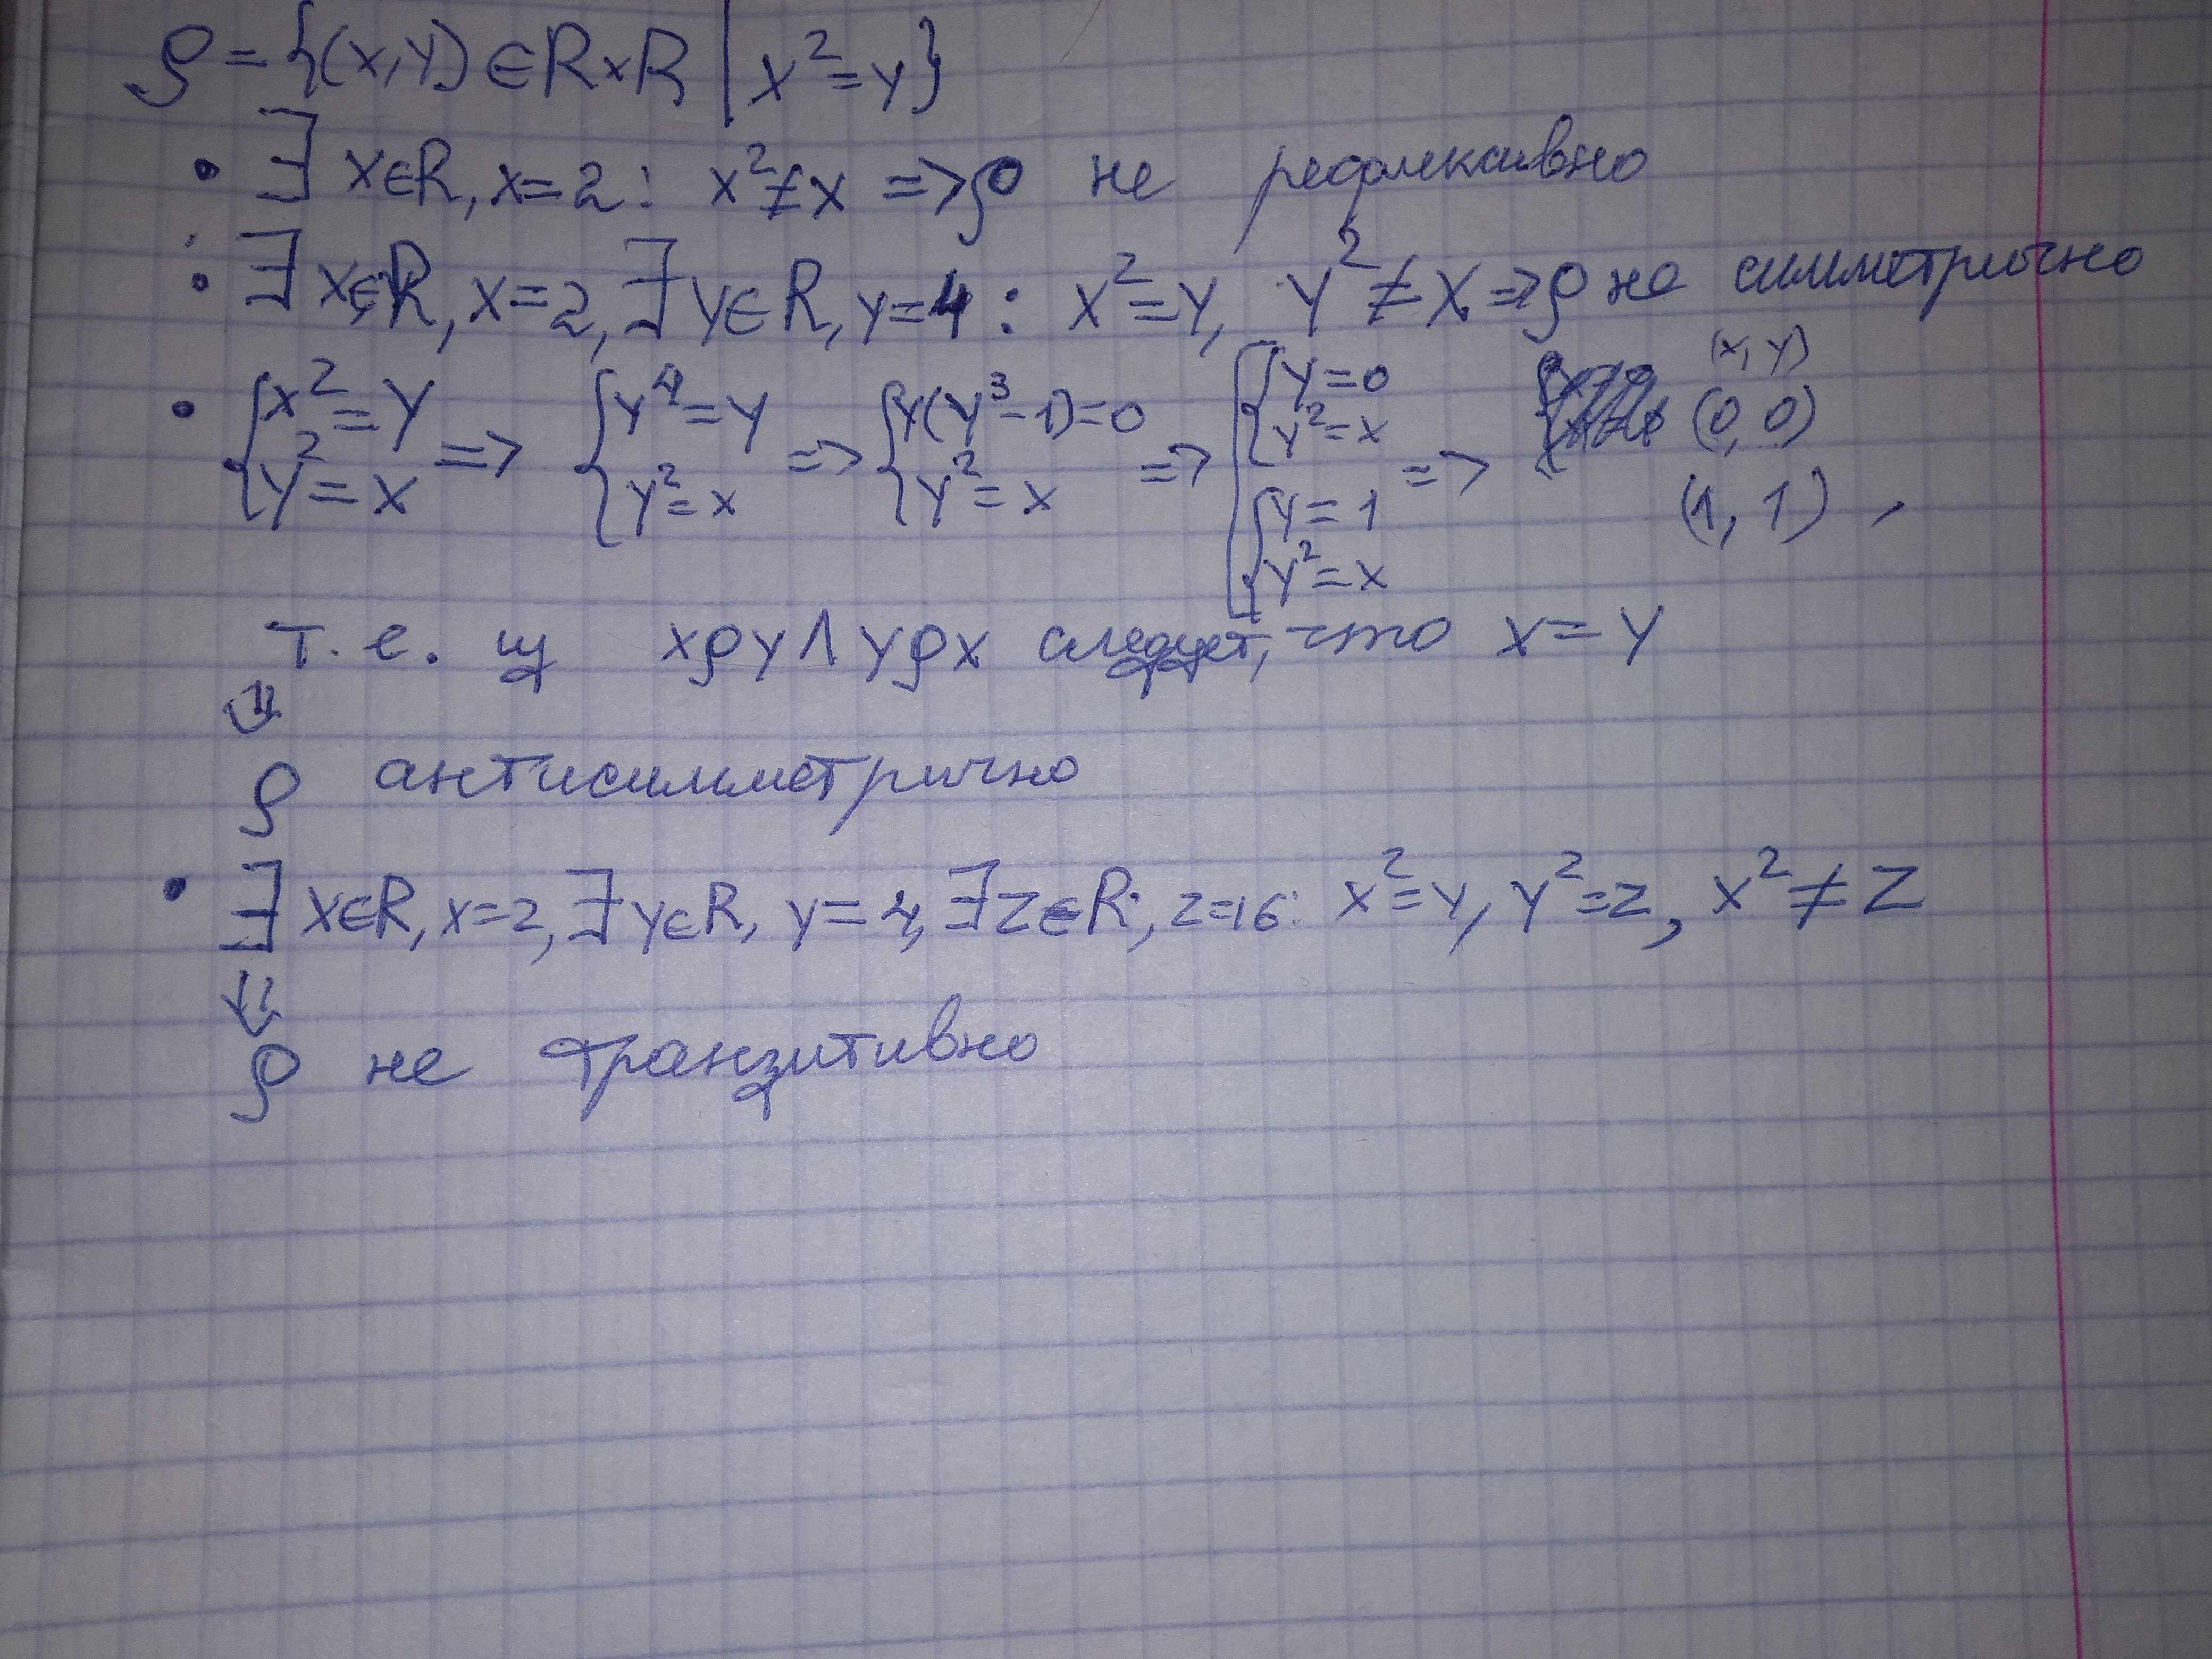 ρ = {(x,y) ∈ R×R | x² = y}
• ∃ x∈R, x=2: x²≠x => ρ не рефлексивно
• ∃ x∈R, x=2, ∃ y∈R, y=4: x²=y, y²≠x => ρ не симметрично
• {x²=y, y²=x => {y⁴=y, y²=x => {y(y³-1)=0, y²=x => [{y=0, y²=x; {y=1, y²=x => (x,y) (0,0) (1,1),
т.е. из xρy ∧ yρx следует, что x=y
⇓
ρ антисимметрично
• ∃ x∈R, x=2, ∃ y∈R, y=4, ∃ z∈R, z=16: x²=y, y²=z, x²≠z
⇓
ρ не транзитивно